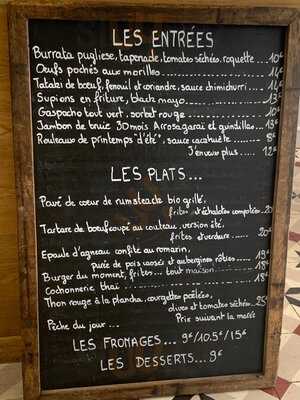 LES ENTRÉES
Burrata pugliese, tapenade, tomates séchées, roquette ... 10€
Oeufs pochés aux morilles ... 14€
Tataki de boeuf, fenouil et coriandre, sauce chimichurri ... 14€
Supions en friture, black mayo ... 13€
Gaspacho tout vert, sorbet rouge ... 10€
Jambon de truie 30 mois Arrosagarai et guindillas ... 13€
Rouleaux de printemps d'été, sauce cacahuète ... 8€
J'en veux plus ..... 12€
LES PLATS...
Pavé de coeur de rumsteack bio grillé,
frites et échalotes compotées . 20
Tartare de boeuf coupé au couteau, version été,
frites et verdure ..... 20€
Epaule d'agneau confite au romarin,
purée de pois cassés et aubergines rôties ..... 19€
Burger du moment, frites ... tout maison ..... 18€
Cochonnerie thaï ..... 18€
Thon rouge à la plancha, courgettes poêlées,
olives et tomates séchées . 25
Pêche du jour ... Prix suivant la marée
LES FROMAGES... 9€/10.5€/15€
LES DESSERTS... 9€